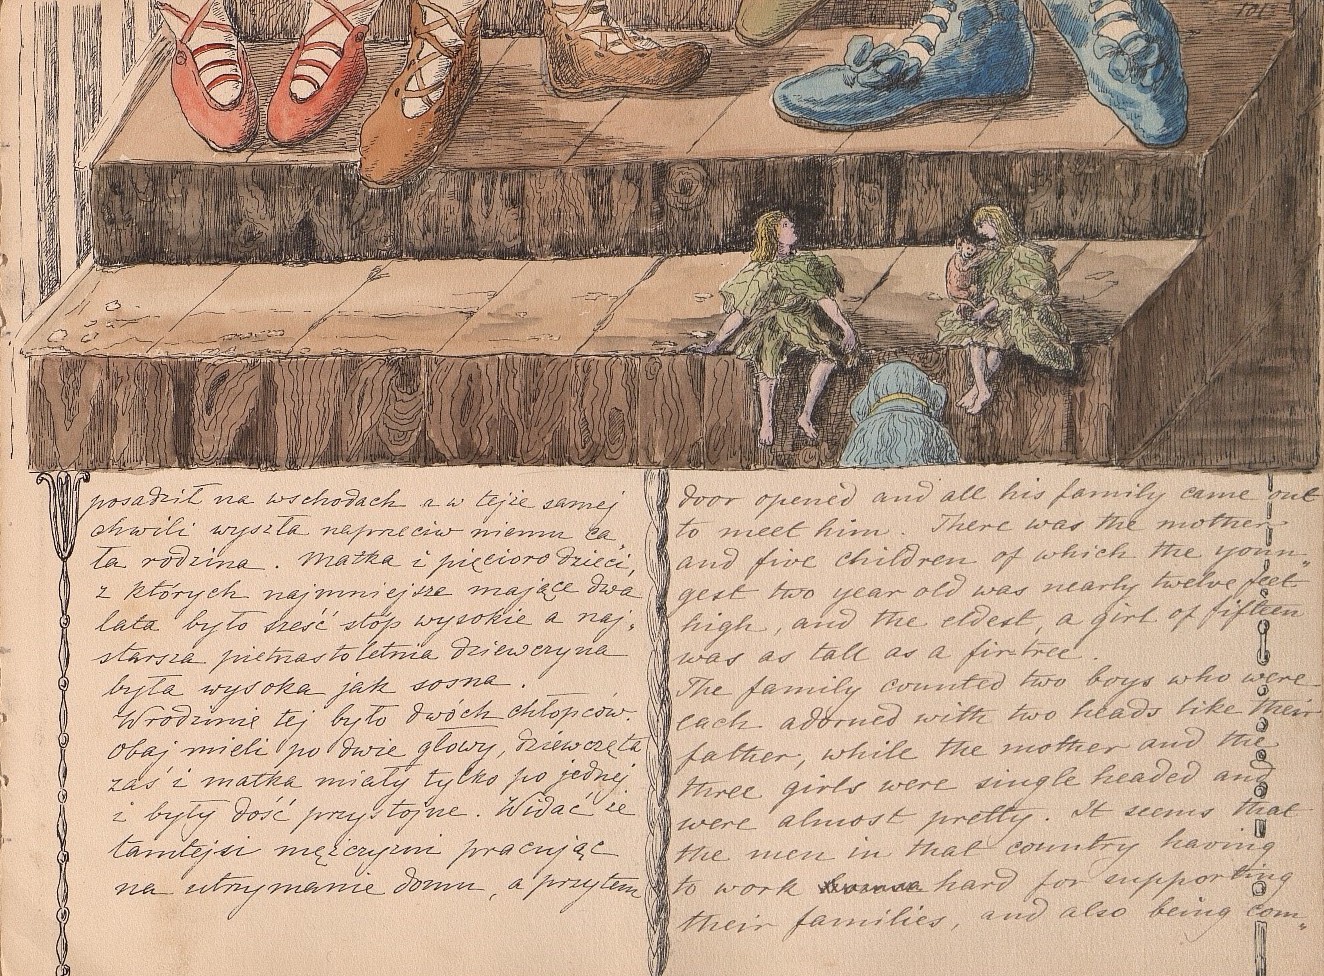 posadził na wschodach a w tejże samej
chwili wyszła naprzeciw niemu ca
ła rodzina. Matka i pięcioro dzieci,
z których najmniejsze mające dwa
lata było sześć stóp wysokie a naj„
starsza piętnastoletnia dziewczyna
była wysoka jak sosna.
W rodzinie tej było dwóch chłopców.
Obaj mieli po dwie głowy, dziewczęta
zaś i matka miały tylko po jednej
i były dość przystojne. Widać że
tamtejsi mężczyźni pracując
na utrzymanie domu, a przytem
door opened and all his family came out
to meet him. There was the mother
and five children of which the youn„
gest two year old was nearly twelve feet
high, and the eldest, a girl of fifteen
was as tall as a firtree.
The family counted two boys who were
each adorned with two heads like their
father, while the mother and the
three girls were single headed and
were almost pretty. It seems that
the men in that country having
to work hard for supporting
their families, and also being com„